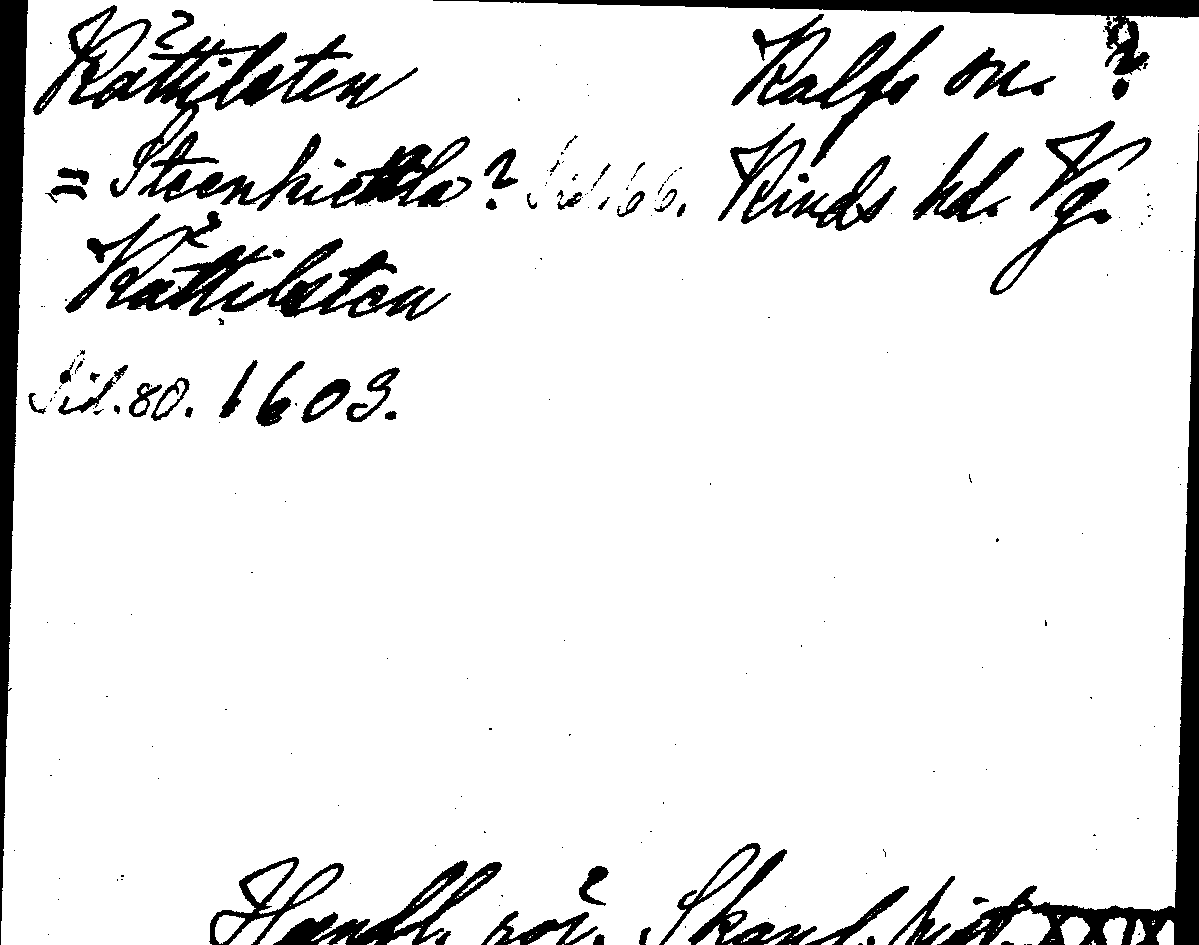 Kättilsten Kalfs sn. ?
= Steenkiettla? Sid. 66. Kinds hd. Vg.
Kättilsten
Sid. 80. 1603.
Handl. rör. Skand. hist. XXIX